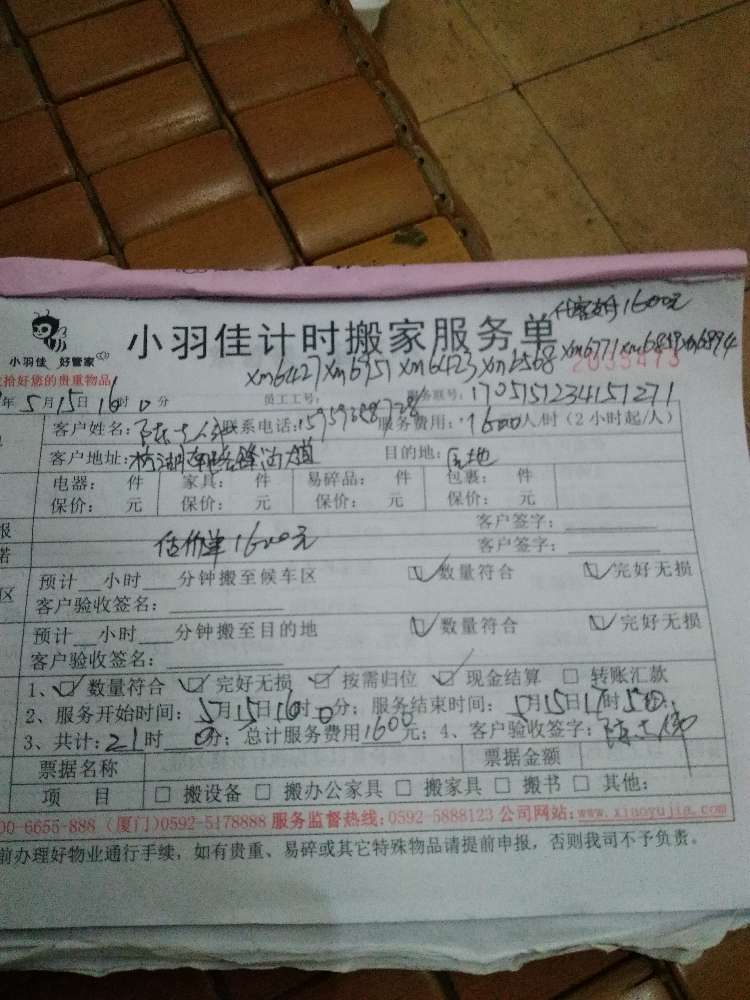 小羽佳 好管家
小羽佳计时搬家服务单
1600元
拾好您的贵重物品
xm6427 xm6951 xm6423 xm6568 xm6771
2055473
年5月15日16时0分 员工工号: 服务联号: 1705151234151271
客户姓名: 联系电话: 服务费用: 1600人/时(2小时起/人)
客户地址: 目的地:
电器: 件 家具: 件 易碎品: 件 包裹: 件
保价: 元 保价: 元 保价: 元 保价: 元
报 客户签字:
估价单1600元
诺 客户签字:
区 预计__小时___分钟搬至候车区 数量符合 完好无损
客户验收签名:
预计__小时___分钟搬至目的地 数量符合 完好无损
客户验收签名:
1、数量符合 完好无损 按需归位 现金结算 转账汇款
2、服务开始时间: 5月15日16时0分; 服务结束时间: 5月15日17时50分;
3、共计: 21时0分; 总计服务费用1600元; 4、客户验收签字:
票据名称 票据金额
项 目 搬设备 搬办公家具 搬家具 搬书 其他:
00-6655-888 (厦门)0592-5178888 服务监督热线:0592-5888123 公司网站:www.xiaoyujia.com
前办理好物业通行手续,如有贵重、易碎或其它特殊物品请提前申报,否则我司不予负责。